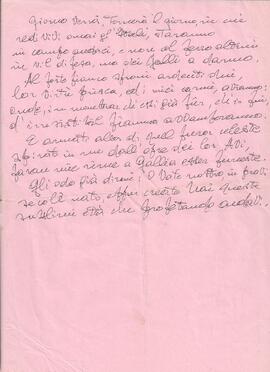 Giorno verrà, tornerà il giorno, in cui
redivivi omai gl'Itali, staranno
in campo audaci, e non al ferro altrui
in vil difesa, ma dei Galli a danno.
Al forte fianco sproni ardenti dui,
lor virtù prisca, ed i miei carmi, avranno:
onde, in membrar ch'essi già fur, ch'io fui,
d'irresistibil fiamma avvamperanno.
E armati allor di quel furor celeste
spirato in me dall'opre dei lor Avi,
faran mie rime a Gallia esser funeste.
Gli odo già dirmi: O Vate nostro, in pravi
secoli nato, eppur create hai queste
sublimi età che profetando andavi.